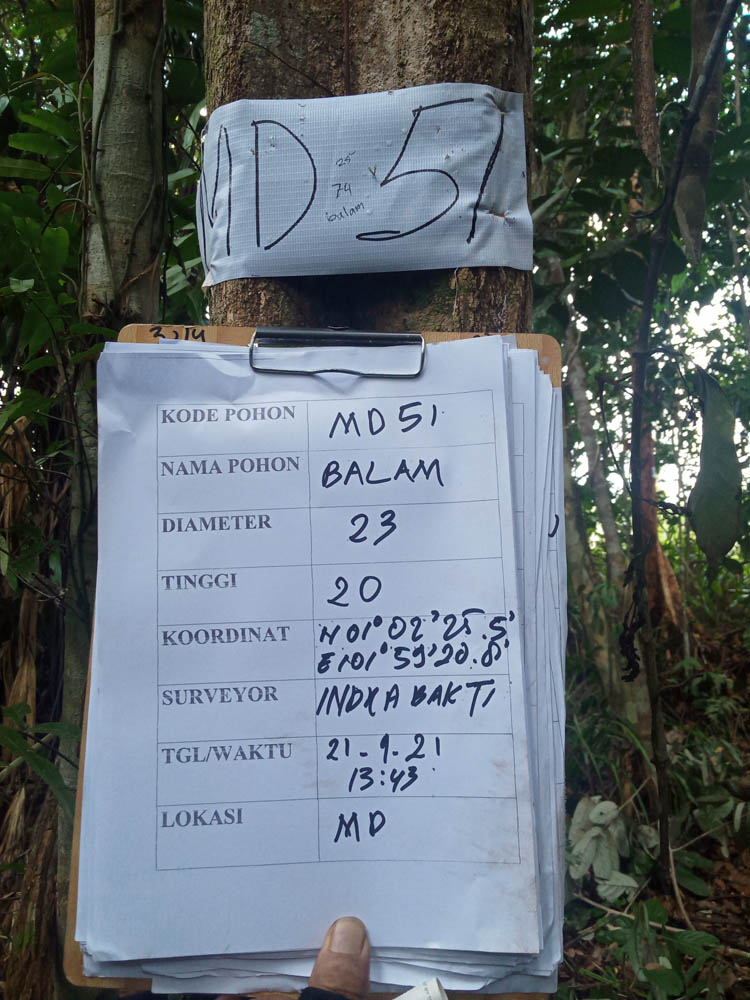 MD 51
25
74
balam
KODE POHON MD51
NAMA POHON BALAM
DIAMETER 23
TINGGI 20
KOORDINAT N 01° 02' 25.5'
E101° 59' 20.8'
SURVEYOR INDRA BAKTI
TGL/WAKTU 21-9-21
13:43
LOKASI MD